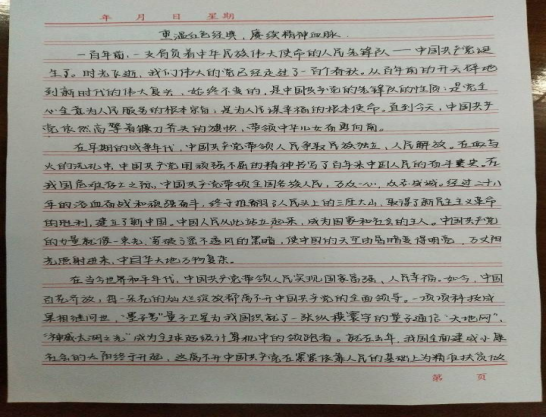 年 月 日 星期
重温红色经典，赓续精神血脉
一百年前，一支肩负着中华民族伟大使命的人民先锋队——中国共产党诞
生了。时光飞逝，我们伟大的党已经走过了一百个春秋。从百年前的开天辟地
到新时代的伟大复兴，始终不变的，是中国共产党的先锋队的性质；是党全
心全意为人民服务的根本宗旨；是为人民谋幸福的根本使命。直到今天，中国共产
党依然高擎着镰刀斧头的旗帜，带领中华儿女奋勇向前。
在早期的战争年代，中国共产党带领人民争取民族独立、人民解放。在血与
火的洗礼中，中国共产党用顽强不屈的精神书写了百年来中国人民的奋斗史。在
我国危难存亡之际，中国共产党带领全国各族人民，万众一心，众志成城。经过二十八
年的浴血奋战和顽强奋斗，终于推翻了人民头上的三座大山，取得了新民主主义革命
的胜利，建立了新中国。中国人民从此站立起来，成为国家和社会的主人。中国共产党
的力量就像一束光，剪破了密不透风的黑暗，使中国的天空由昏暗变得明亮，万丈阳
光照射进来，中国华大地万物复苏。
在当今世界和平年代，中国共产党带领人民实现国家富强、人民幸福。如今，中国
百花齐放，每一朵花的灿烂绽放都离不开中国共产党的全面领导。一项项科技成
果相继问世，“墨子号”量子卫星为我国织就了一张纵横寰宇的量子通信“天地网”，
“神威太湖之光”成为全球超级计算机中的领跑者。就在去年，我国全面建成小康
社会的大阳终于升起，这离不开中国共产党在紧紧依靠人民的基础上为精准扶贫做
第 页